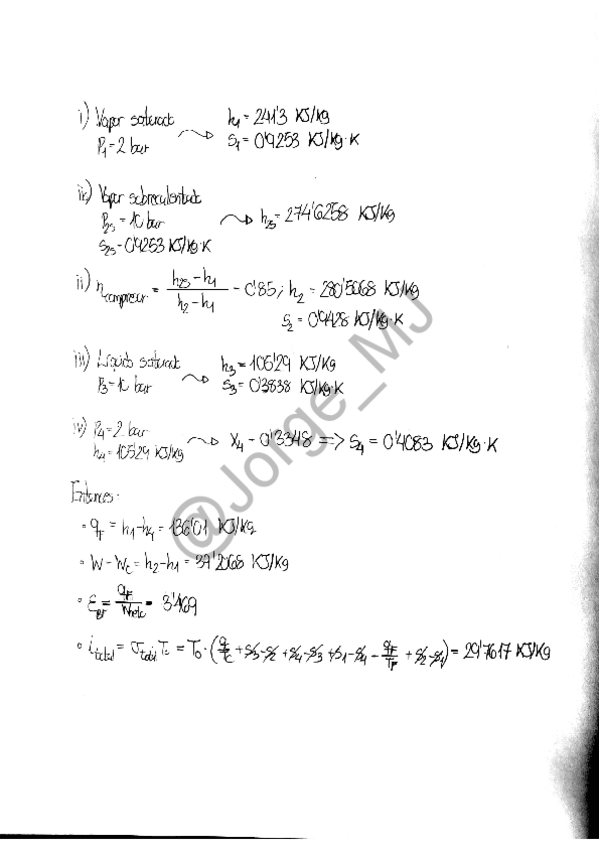 i) Vapor saturat
P₁ = 2 bar
h₁ = 241'3 KJ/Kg
s₁ = 0'9253 KJ/Kg·K
Vapor sobrecalentado
P₂ₛ = 10 bar
s₂ₛ = 0'9253 KJ/Kg·K
h₂ₛ = 274'6258 KJ/Kg
ii) η compresor = (h₂ₛ - h₁)/(h₂ - h₁) = 0'85; h₂ = 280'5068 KJ/Kg
s₂ = 0'9428 KJ/Kg·K
iii) Líquido saturat
P₃ = 10 bar
h₃ = 105'29 KJ/Kg
s₃ = 0'3838 KJ/Kg·K
iv) P₄ = 2 bar
h₄ = 105'29 KJ/Kg
x₄ = 0'3348 => s₄ = 0'4083 KJ/Kg·K
Entonces:
• q_F = h₁ - h₄ = 136'01 KJ/Kg
• W = W_C = h₂ - h₁ = 39'2068 KJ/Kg
3'469
= 29'7617 KJ/Kg
@Jorge_MJ